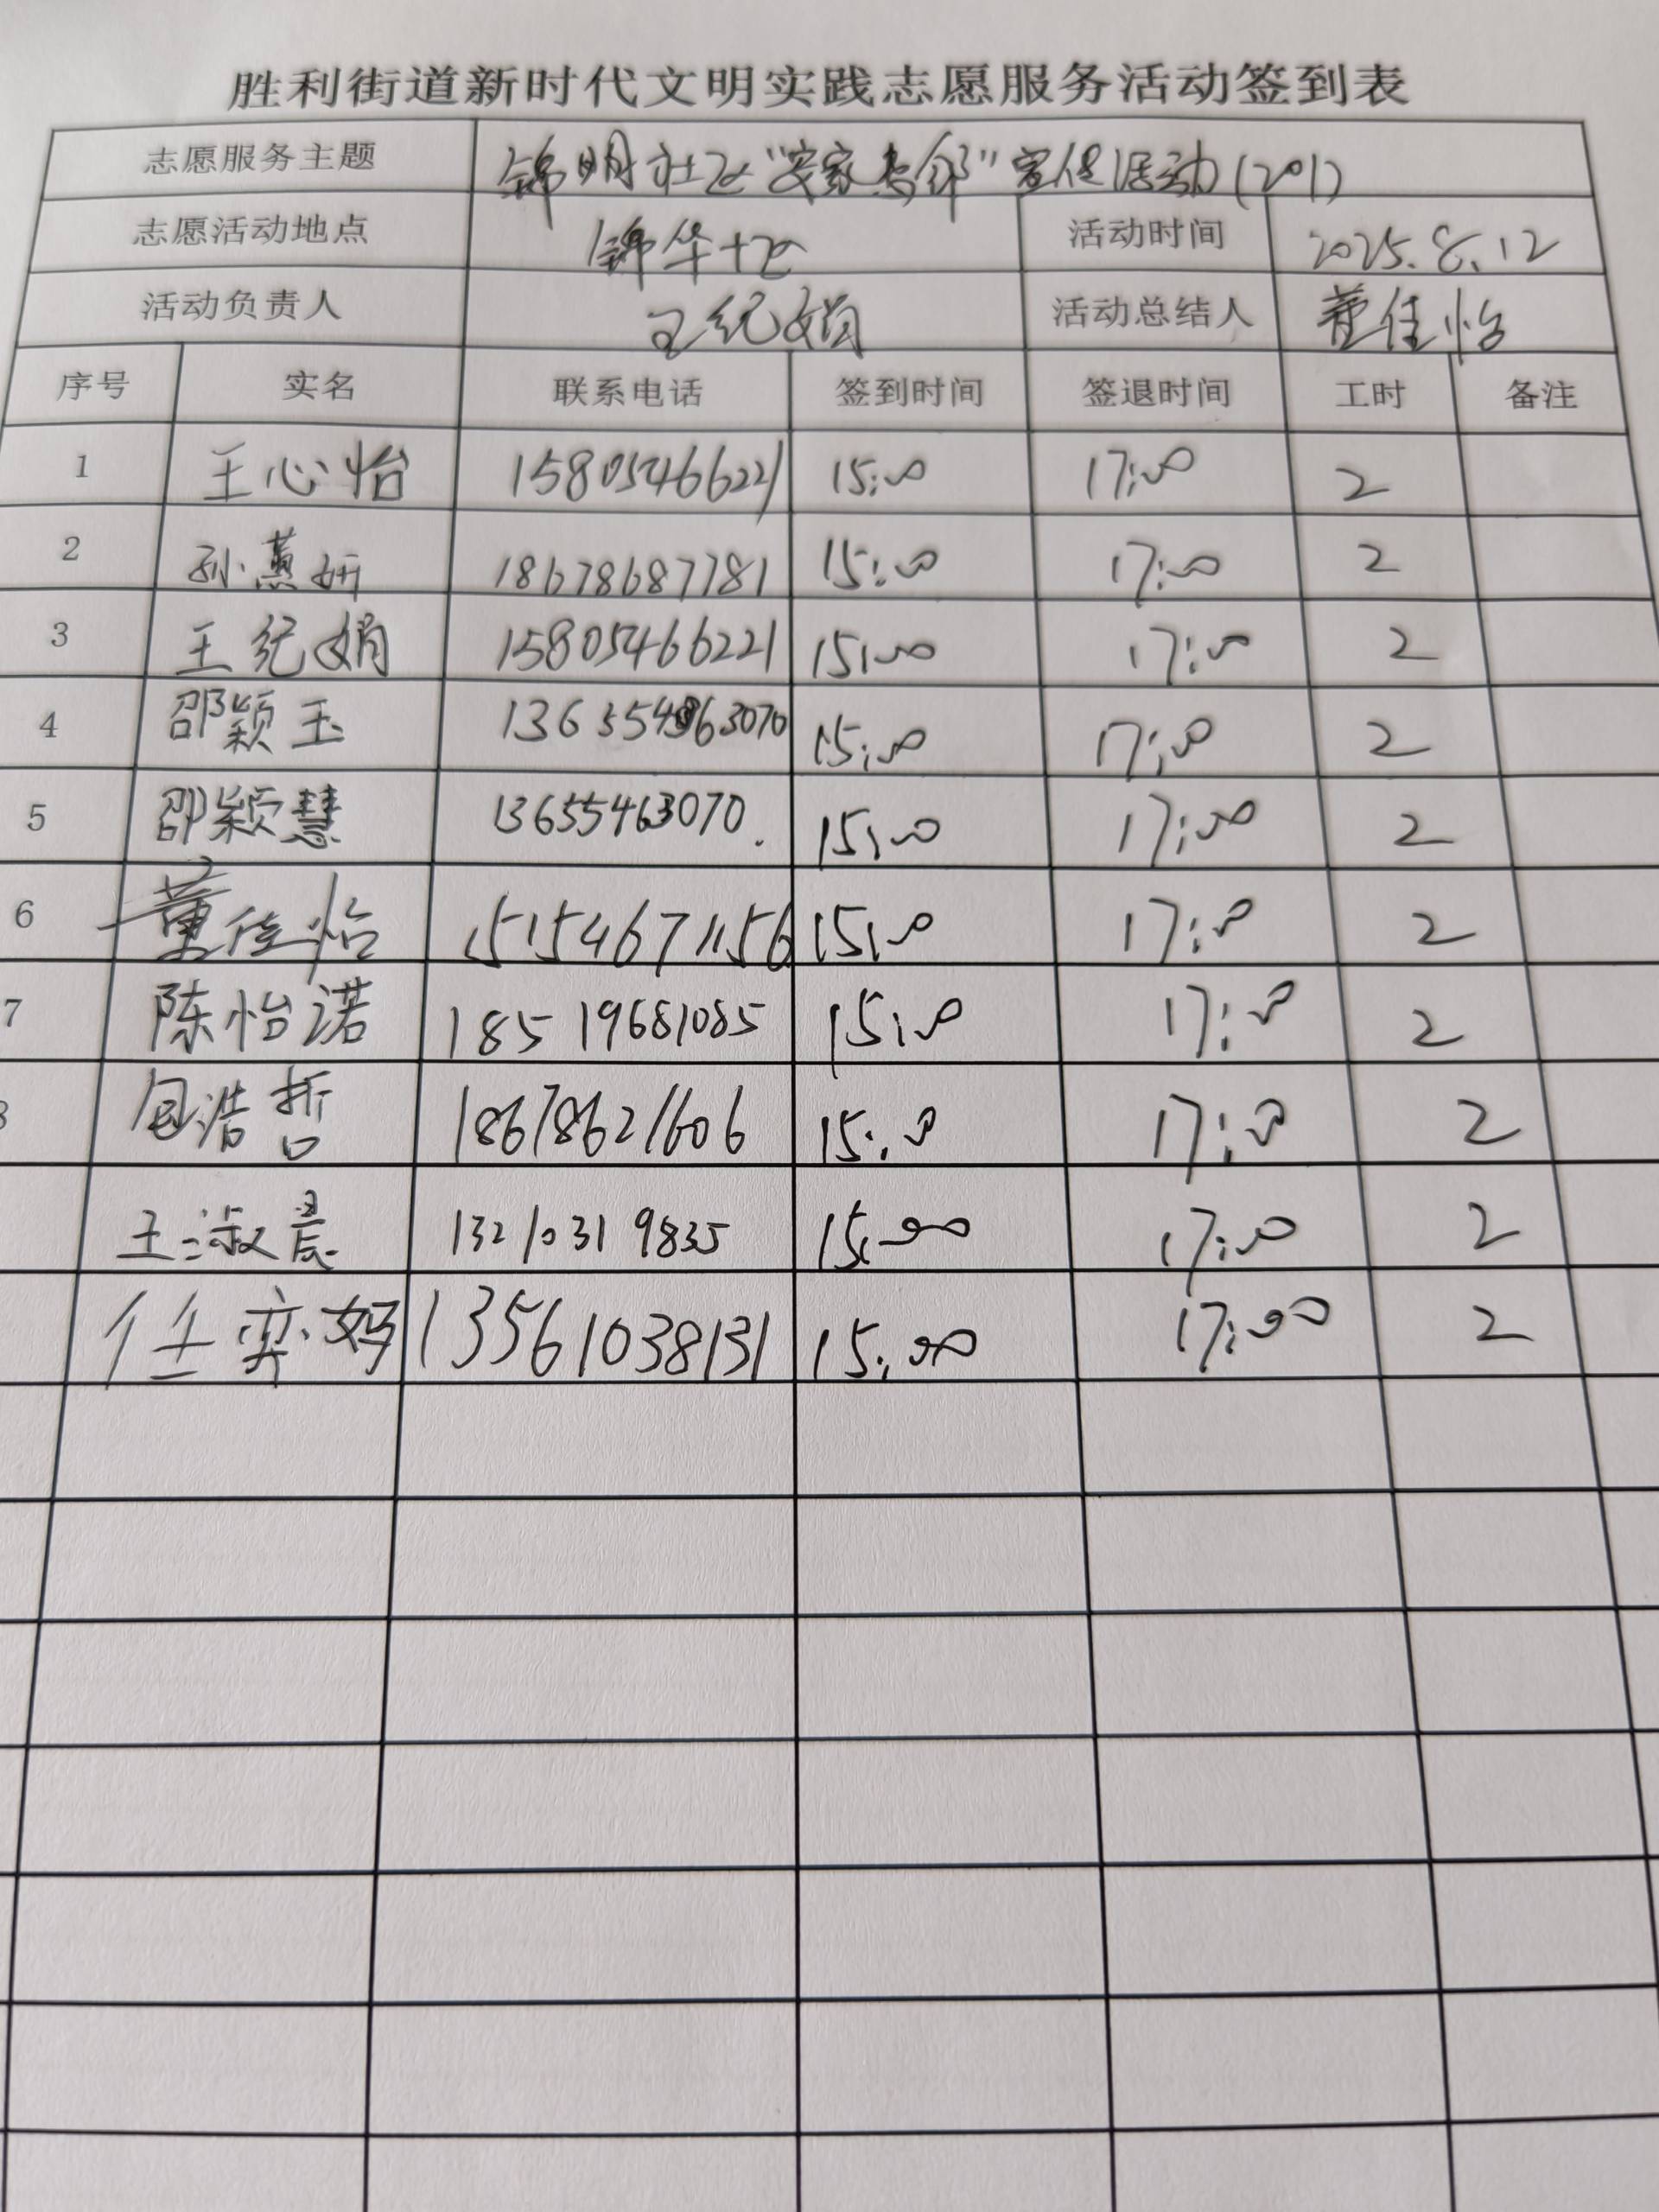 胜利街道新时代文明实践志愿服务活动签到表
志愿服务主题 锦明社区“安家杏邻”宣传活动(201)
志愿活动地点 锦华十区 活动时间 2025.8.12
活动负责人 王纪娟 活动总结人 董佳怡
序号 实名 联系电话 签到时间 签退时间 工时 备注
1 王心怡 15805466221 15:00 17:00 2
2 孙蕙妍 18678687781 15:00 17:00 2
3 王纪娟 15805466221 15:00 17:00 2
4 邵颖玉 15:00 17:00 2
5 邵颖慧 13655463070. 15:00 17:00 2
6 董佳怡 15154671156 15:00 17:00 2
7 陈怡诺 18519681085 15:00 17:00 2
8 包浩哲 18678621606 15:00 17:00 2
王淑晨 13210319835 15:00 17:00 2
任奕妈 13561038131 15:00 17:00 2